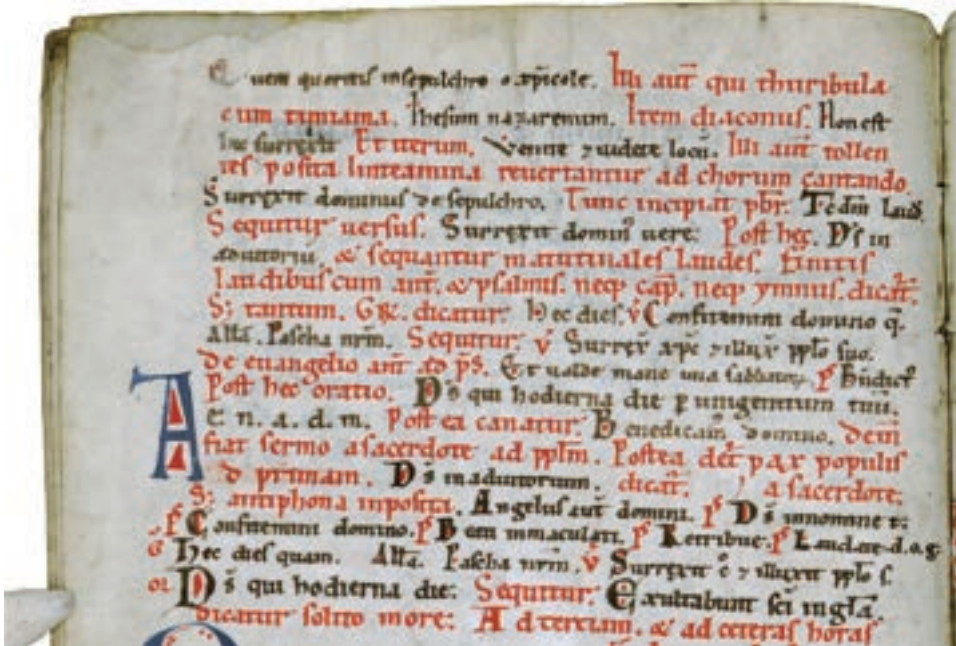 Quem queritis in sepulchro o xpicole. Illi aut qui thuribula
cum timiama. Ihesum nazarenum. Item diaconus. Non est
hic surrexit Et iterum. Venite ⁊ uidete locū. Illi aut tollen
tes posita linteamina reuertantur ad chorum cantando.
Surrexit dominus de sepulchro. Tunc incipiat pbr. Te dm laud.
Sequitur uersus. Surrexit domin᷒ uere. Post hec. Ds in
adiutoriū, & sequantur matutinales laudes. Finitis
laudibus cum ant. & psalmis. neq cap. neq ymnus. dicat.
S; tantum. GR. dicatur. Hec dies. v Confitemini domino q.
Alla. Pascha nrm. Sequitur. v Surrex xpc ⁊ illux pplo suo.
De euangelio ant ad ps. Et ualde mane una sabbatoꝝ. p
Post hec oratio. Ds qui hodierna die p unigenitum tuū.
E. n. a. d. m. Post ea canatur. Benedicam domino. Dein
fiat sermo a sacerdote ad pplm. Postea det pax populis
Ad primam. Ds in adiutorium. dicat. a sacerdote.
S; antiphona inposita. Angelus aut domini. p Ds in nomine t.
p Confitemini domino. p Beati inmaculati. p Retribue. p Laudate. d. o. g.
G Hec dies quam. Alla. Pascha nrm. v Surrexit ⁊ illuxit pplo s.
or Ds qui hodierna die. Sequitur. Exultabunt sci in gla.
dicatur solito more. Ad tertium. & ad ceteras horas